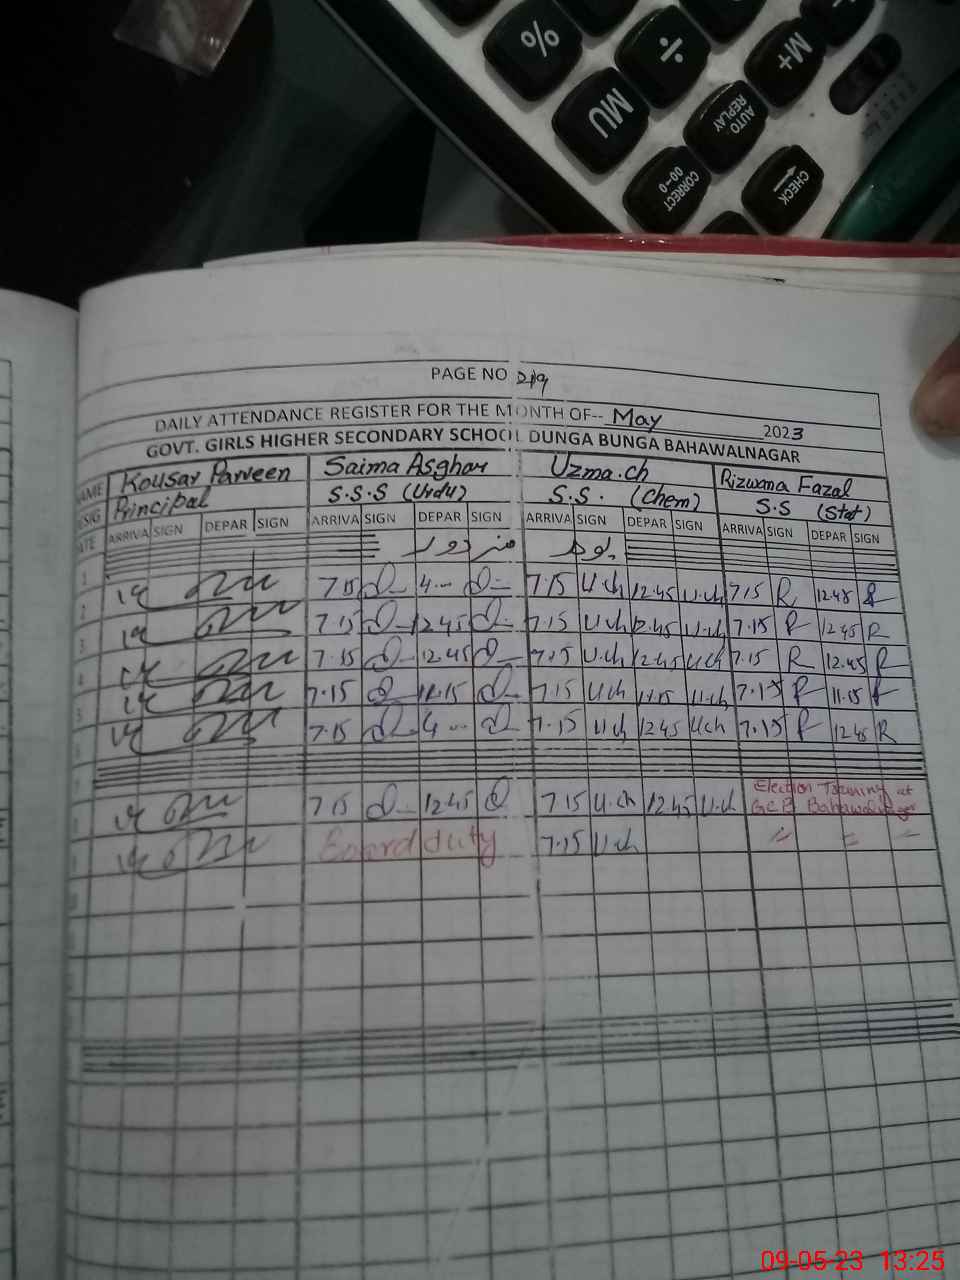 %
÷
M+
MU
AUTO REPLAY
CORRECT 00→0
CHECK
PAGE NO 219
DAILY ATTENDANCE REGISTER FOR THE MONTH OF-- May 2023
GOVT. GIRLS HIGHER SECONDARY SCHOOL DUNGA BUNGA BAHAWALNAGAR
NAME Kousar Parveen Saima Asghar Uzma.ch Rizwana Fazal
SIG Principal S.S.S (Urdu) S.S. (Chem) S.S (Stat)
ATE ARRIVA SIGN DEPAR SIGN ARRIVA SIGN DEPAR SIGN ARRIVA SIGN DEPAR SIGN ARRIVA SIGN DEPAR SIGN
1
2 7.15 4 7.15 U.ch 12.45 U.ch 7.15 R 12.45 R
3 7.15 12.45 7.15 U.ch 12.45 U.ch 7.15 R 12.45 R
4 7.15 12.45 7.15 U.ch 12.45 U.ch 7.15 R 12.45 R
5 7.15 11.15 7.15 U.ch 11.15 U.ch 7.15 R 11.15 R
7.15 4 7.15 U.ch 12.45 U.ch 7.15 R 12.45 R
7.15 12.45 7.15 U.ch 12.45 U.ch Election Training at
GCB Bahawalnagar
Board duty 7.15 U.ch
09-05-23 13:25